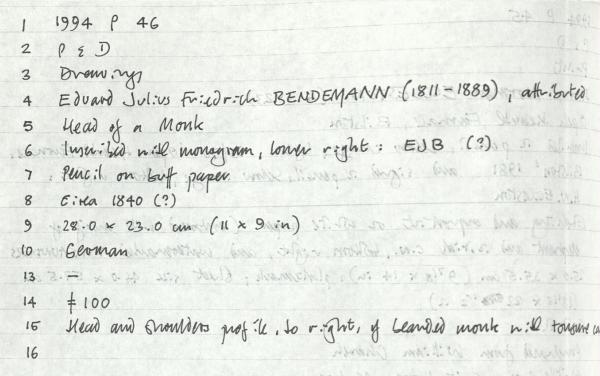 1 1994 P 46
2 P & D
3 Drawings
4 Eduard Julius Friedrich BENDEMANN (1811-1889), attributed
5 Head of a Monk
6 Inscribed with monogram, lower right: EJB (?)
7 Pencil on buff paper
8 Circa 1840 (?)
9 28.0 x 23.0 cm (11 x 9 in)
10 German
13 —
14 ≠ 100
15 Head and shoulders profile, to right, of bearded monk with tonsure
16